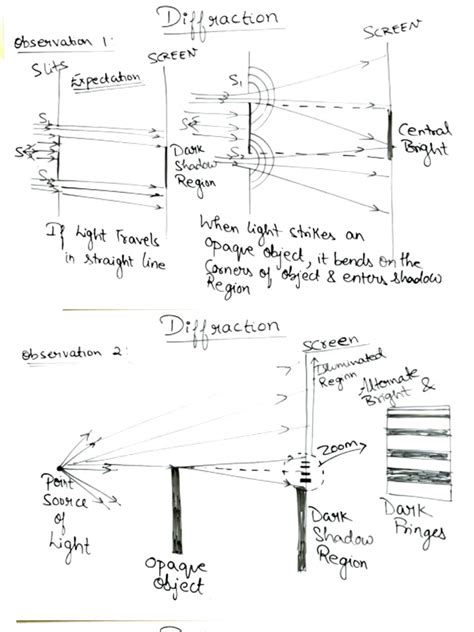 Diffraction
Observation 1:
Slits
Expectation
SCREEN
S1
S
S2
Dark
Shadow
Region
If Light Travels
in straight line
SCREEN
S1
S
S2
Central
Bright
When light strikes an
opaque object, it bends on the
corners of object & enters shadow
Region
Diffraction
Observation 2:
Screen
Illuminated
Region
Alternate
Bright &
Zoom
Point
Source
of
Light
Opaque
Object
Dark
Shadow
Region
Dark
Fringes
Diffraction